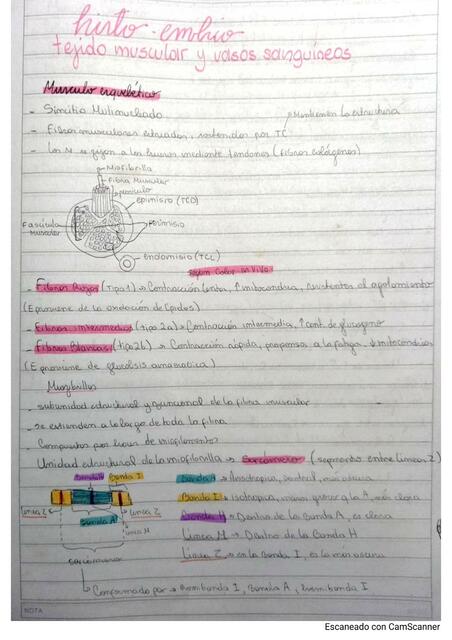 histo-embrio
tejido muscular y vasos sanguíneos
Musculo esquelético
- Sincitio Multinucleado
Mantienen la estructura
- Fibras musculares estriadas, sostenidas por TC
- Los M se fijan a los huesos mediante tendones (fibras colágenas)
Miofibrilla
Fibra Muscular
epimisio (TCD)
Fascículo muscular
Perimisio
Endomisio (TCL)
Según Color en Vivo
- Fibras Rojas (Tipo 1) → Contracción lenta, ↑ mitocondria, resistentes al agotamiento
(E proviene de la oxidación de lípidos)
- Fibras Intermedias (tipo 2a) → Contracción intermedia, ↑ cant. de glucógeno
- Fibras Blancas (tipo 2b) → Contracción rápida, propensas a la fatiga, ↓ mitocondrias
(E proviene de glucólisis anaerobica)
Miofibrillas
- subunidad estructural y funcional de la fibra muscular
- se extienden a lo largo de toda la fibra
- Compuestas por haces de miofilamentos
Unidad estructural de la miofibrilla → Sarcómero (segmento entre líneas Z)
Banda H Banda I
Linea Z
Banda A
Linea Z
Linea M
sarcómero
Banda A → Anisotropa, central, más oscura
Banda I → isotropica, menos gruesa q la A, más clara
Banda H → Dentro de la Banda A, es clara
Linea M → Dentro de la Banda H
Linea Z → en la Banda I, es la más oscura
Conformado por → Hemibanda I, Banda A, Hemibanda I
NOTA
Escaneado con CamScanner